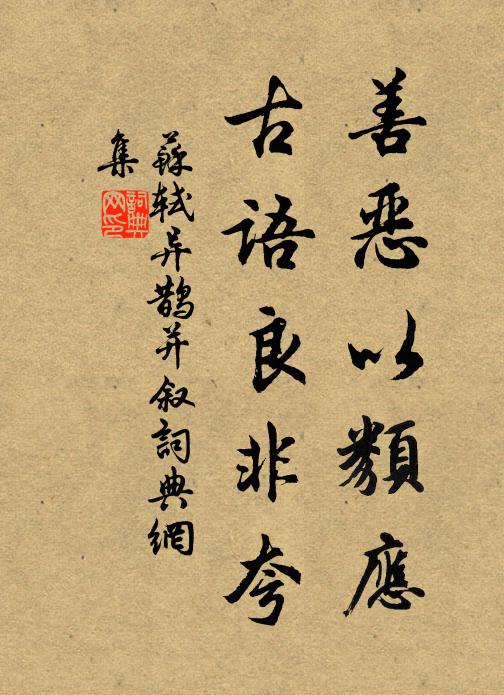 善惡以類應
古語良非夸
蘇軾异鵲并叙詞典網
集
詞典网印